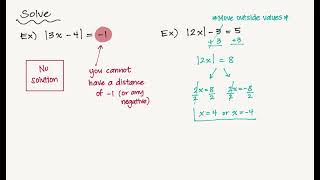 Solve
Ex) |3x - 4| = -1
No
solution
you cannot
have a distance
of -1 (or any
negative)
*Move outside values*
Ex) |2x| - 3 = 5
+3 +3
|2x| = 8
2x = 8 2x = -8
2 2 2 2
x = 4 or x = -4